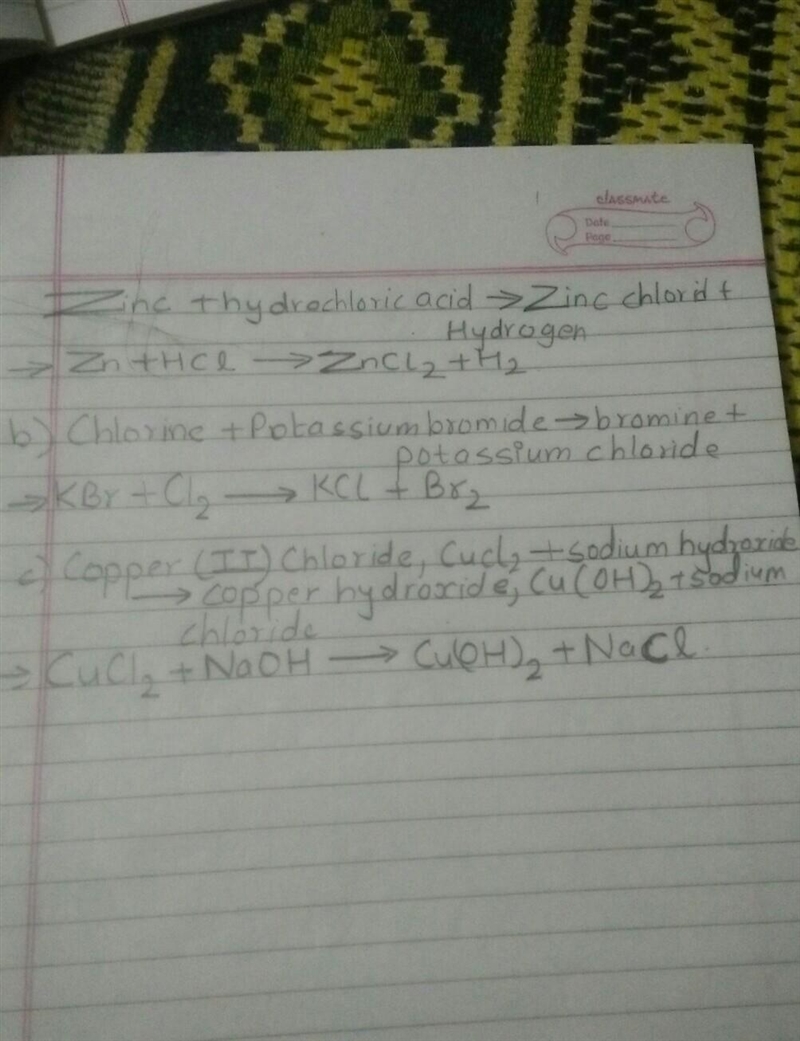 classmate
Date
Page
Zinc + hydrochloric acid → Zinc chlorid +
Hydrogen
→ Zn + HCl → ZnCl2 + H2
b) Chlorine + Potassium bromide → bromine +
potassium chloride
→ KBr + Cl2 → KCl + Br2
c) Copper (II) Chloride, CuCl2 + sodium hydroxide
→ copper hydroxide, Cu(OH)2 + sodium
chloride
→ CuCl2 + NaOH → Cu(OH)2 + NaCl.